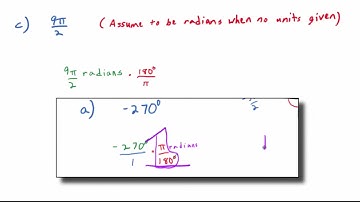 c) 9π/2 (Assume to be radians when no units given)
9π/2 radians · 180°/π
a) -270°
-270°/1 · π radians/180°